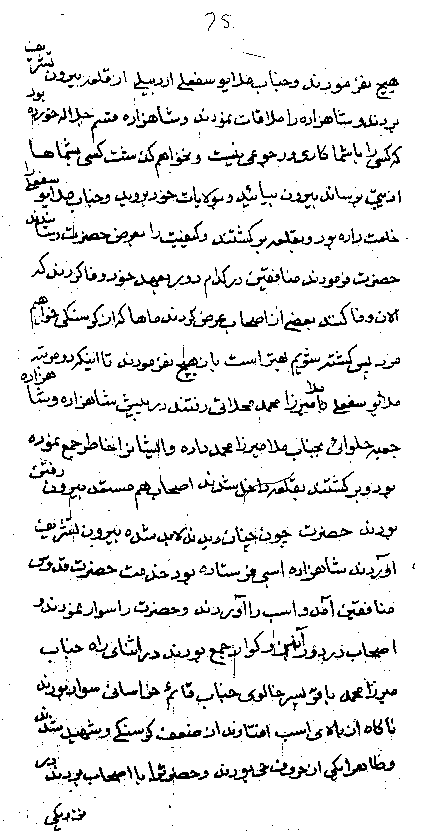 75
هیچ نفرمودند و جناب ملا یوسفعلی اردبیلی از قلعه بیرون تشریف
بردند و شاهزاده را ملاقات نمودند و شاهزاده قسم جلاله خورده بود
که کسی را با شما کاری و رجوعی نیست و نخواهم گذاشت کسی بشماها
اذیتی برساند بیرون بیائید و بولایات خود بروید و جناب ملا یوسفعلی
خلعت داده بود و بقلعه برگشتند و کیفیت را بعرض حضرت رسانیدند
حضرت فرمودند منافقین در کدام دور بعهد خود وفا کردند که
الان وفا کنند بعضی از اصحاب عرض کردند ماها که از گرسنگی خواهیم
مرد پس کشته شویم بهتر است باز هیچ نفرمودند تا اینکه دو مرتبه
ملا یوسفعلی با ملا میرزا محمد محلاتی رفتند در پیش شاهزاده و شاهزاده
جعبه حلوائی بجناب ملا میرزا محمد داده و ایشانرا خاطر جمع نموده
بود و برگشتند بقلعه داخل شدند اصحاب هم مستعد بیرون رفتن
بودند حضرت چون چنان دیدند لابد شده بیرون تشریف
آوردند شاهزاده اسبی فرستاده بود خدمت حضرت قدوس
منافقین آمدند و اسب را آوردند و حضرت را سوار نمودند و
اصحاب در دور آن جمع بودند در اثنای راه جناب
میرزا محمد باقر پسر خالوی جناب قائم خراسانی سوار بودند
ناگاه از بالای اسب افتادند از ضعف گرسنگی و شهید شدند
و ظاهرا یکی از حروف حی بودند و حضرت را با اصحاب بردند در
نزدیکی